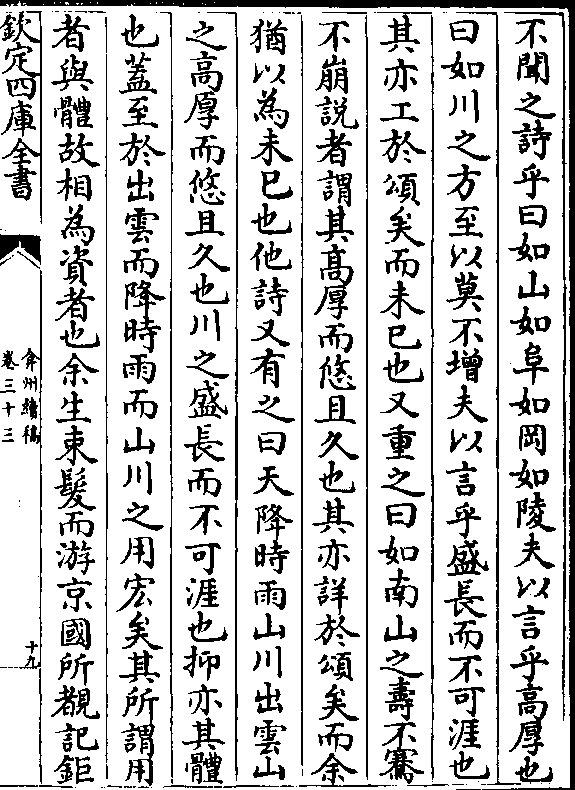 不聞之詩乎曰如山如阜如岡如陵夫以言乎高厚也
曰如川之方至以莫不增夫以言乎盛長而不可涯也
其亦工於頌矣而未已也又重之曰如南山之壽不騫
不崩說者謂其髙厚而悠且久也其亦詳於頌矣而余
猶以為未已也他詩又有之曰天降時雨山川出雲山
之高厚而悠且久也川之盛長而不可涯也抑亦其體
也蓋至於出雲而降時雨而山川之用宏矣其所謂用
者與體故相為資者也余生束髮而游京國所覩記鉅
欽定四庫全書
弇州續稿
卷三十三
十九